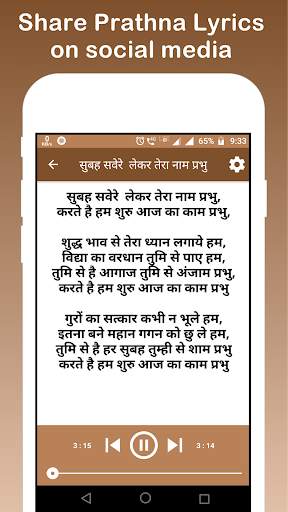 Share Prathna Lyrics
on social media
65% 9:33
सुबह सवेरे लेकर तेरा नाम प्रभु
सुबह सवेरे लेकर तेरा नाम प्रभु,
करते है हम शुरु आज का काम प्रभु,
शुद्ध भाव से तेरा ध्यान लगाये हम,
विद्या का वरधान तुमि से पाए हम,
तुमि से है आगाज तुमि से अंजाम प्रभु,
करते है हम शुरु आज का काम प्रभु
गुरों का सत्कार कभी न भूले हम,
इतना बने महान गगन को छु ले हम,
तुमि से है हर सुबह तुम्ही से शाम प्रभु
करते है हम शुरु आज का काम प्रभु
3 : 15 3 : 14